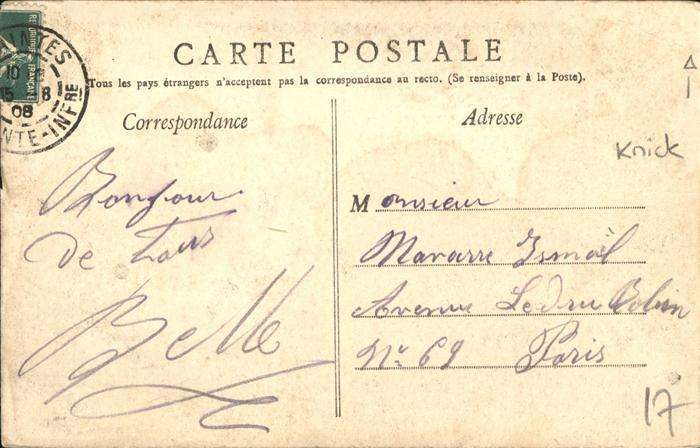 CARTE POSTALE
Tous les pays étrangers n'acceptent pas la correspondance au recto. (Se renseigner à la Poste).
Correspondance
Bonjour
de tous
Belle
Adresse
Knick
Monsieur
Navarre Ismaël
Avenue Ledru Rolin
N° 69 Paris
17
10
15 8
08
NTE-INFRE